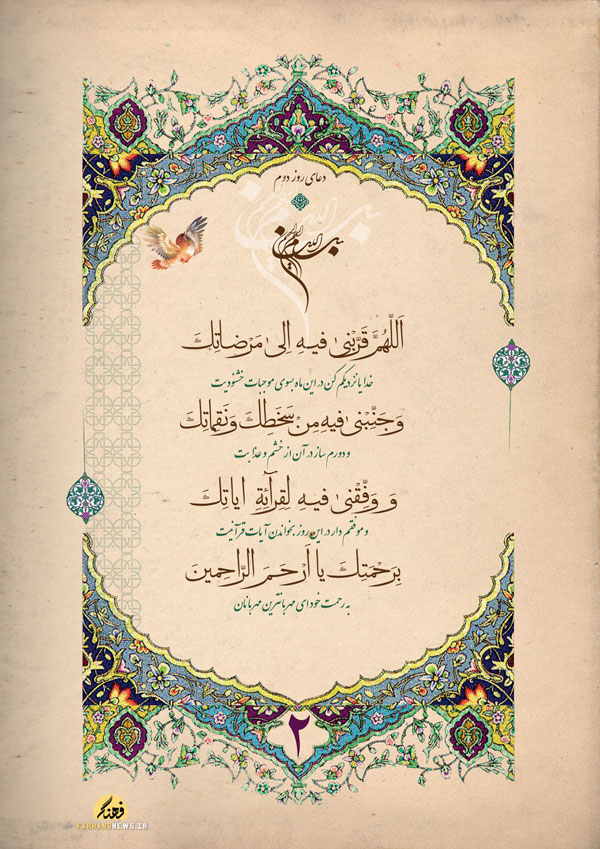 دعای روز دوم
بسم الله الرحمن الرحیم
اَللّهُمَّ قَرِّبْنی فیهِ اِلی مَرْضاتِكَ
خدایا نزدیکم کن در این ماه بسوی موجبات خشنودیت
وَ جَنِّبْنی فیهِ مِنْ سَخَطِكَ وَ نَقِماتِكَ
و دورم ساز در آن از خشم و عذابت
وَ وَفِّقْنی فیهِ لِقِرآئَةِ ایاتِكَ
و موفقم دار در این روز بخواندن آیات قرآنیت
بِرَحْمَتِكَ یا اَرْحَمَ الرّاحِمینَ
به رحمت خود ای مهربانترین مهربانان
۲
فرهنگ
FARHANGNEWS.IR